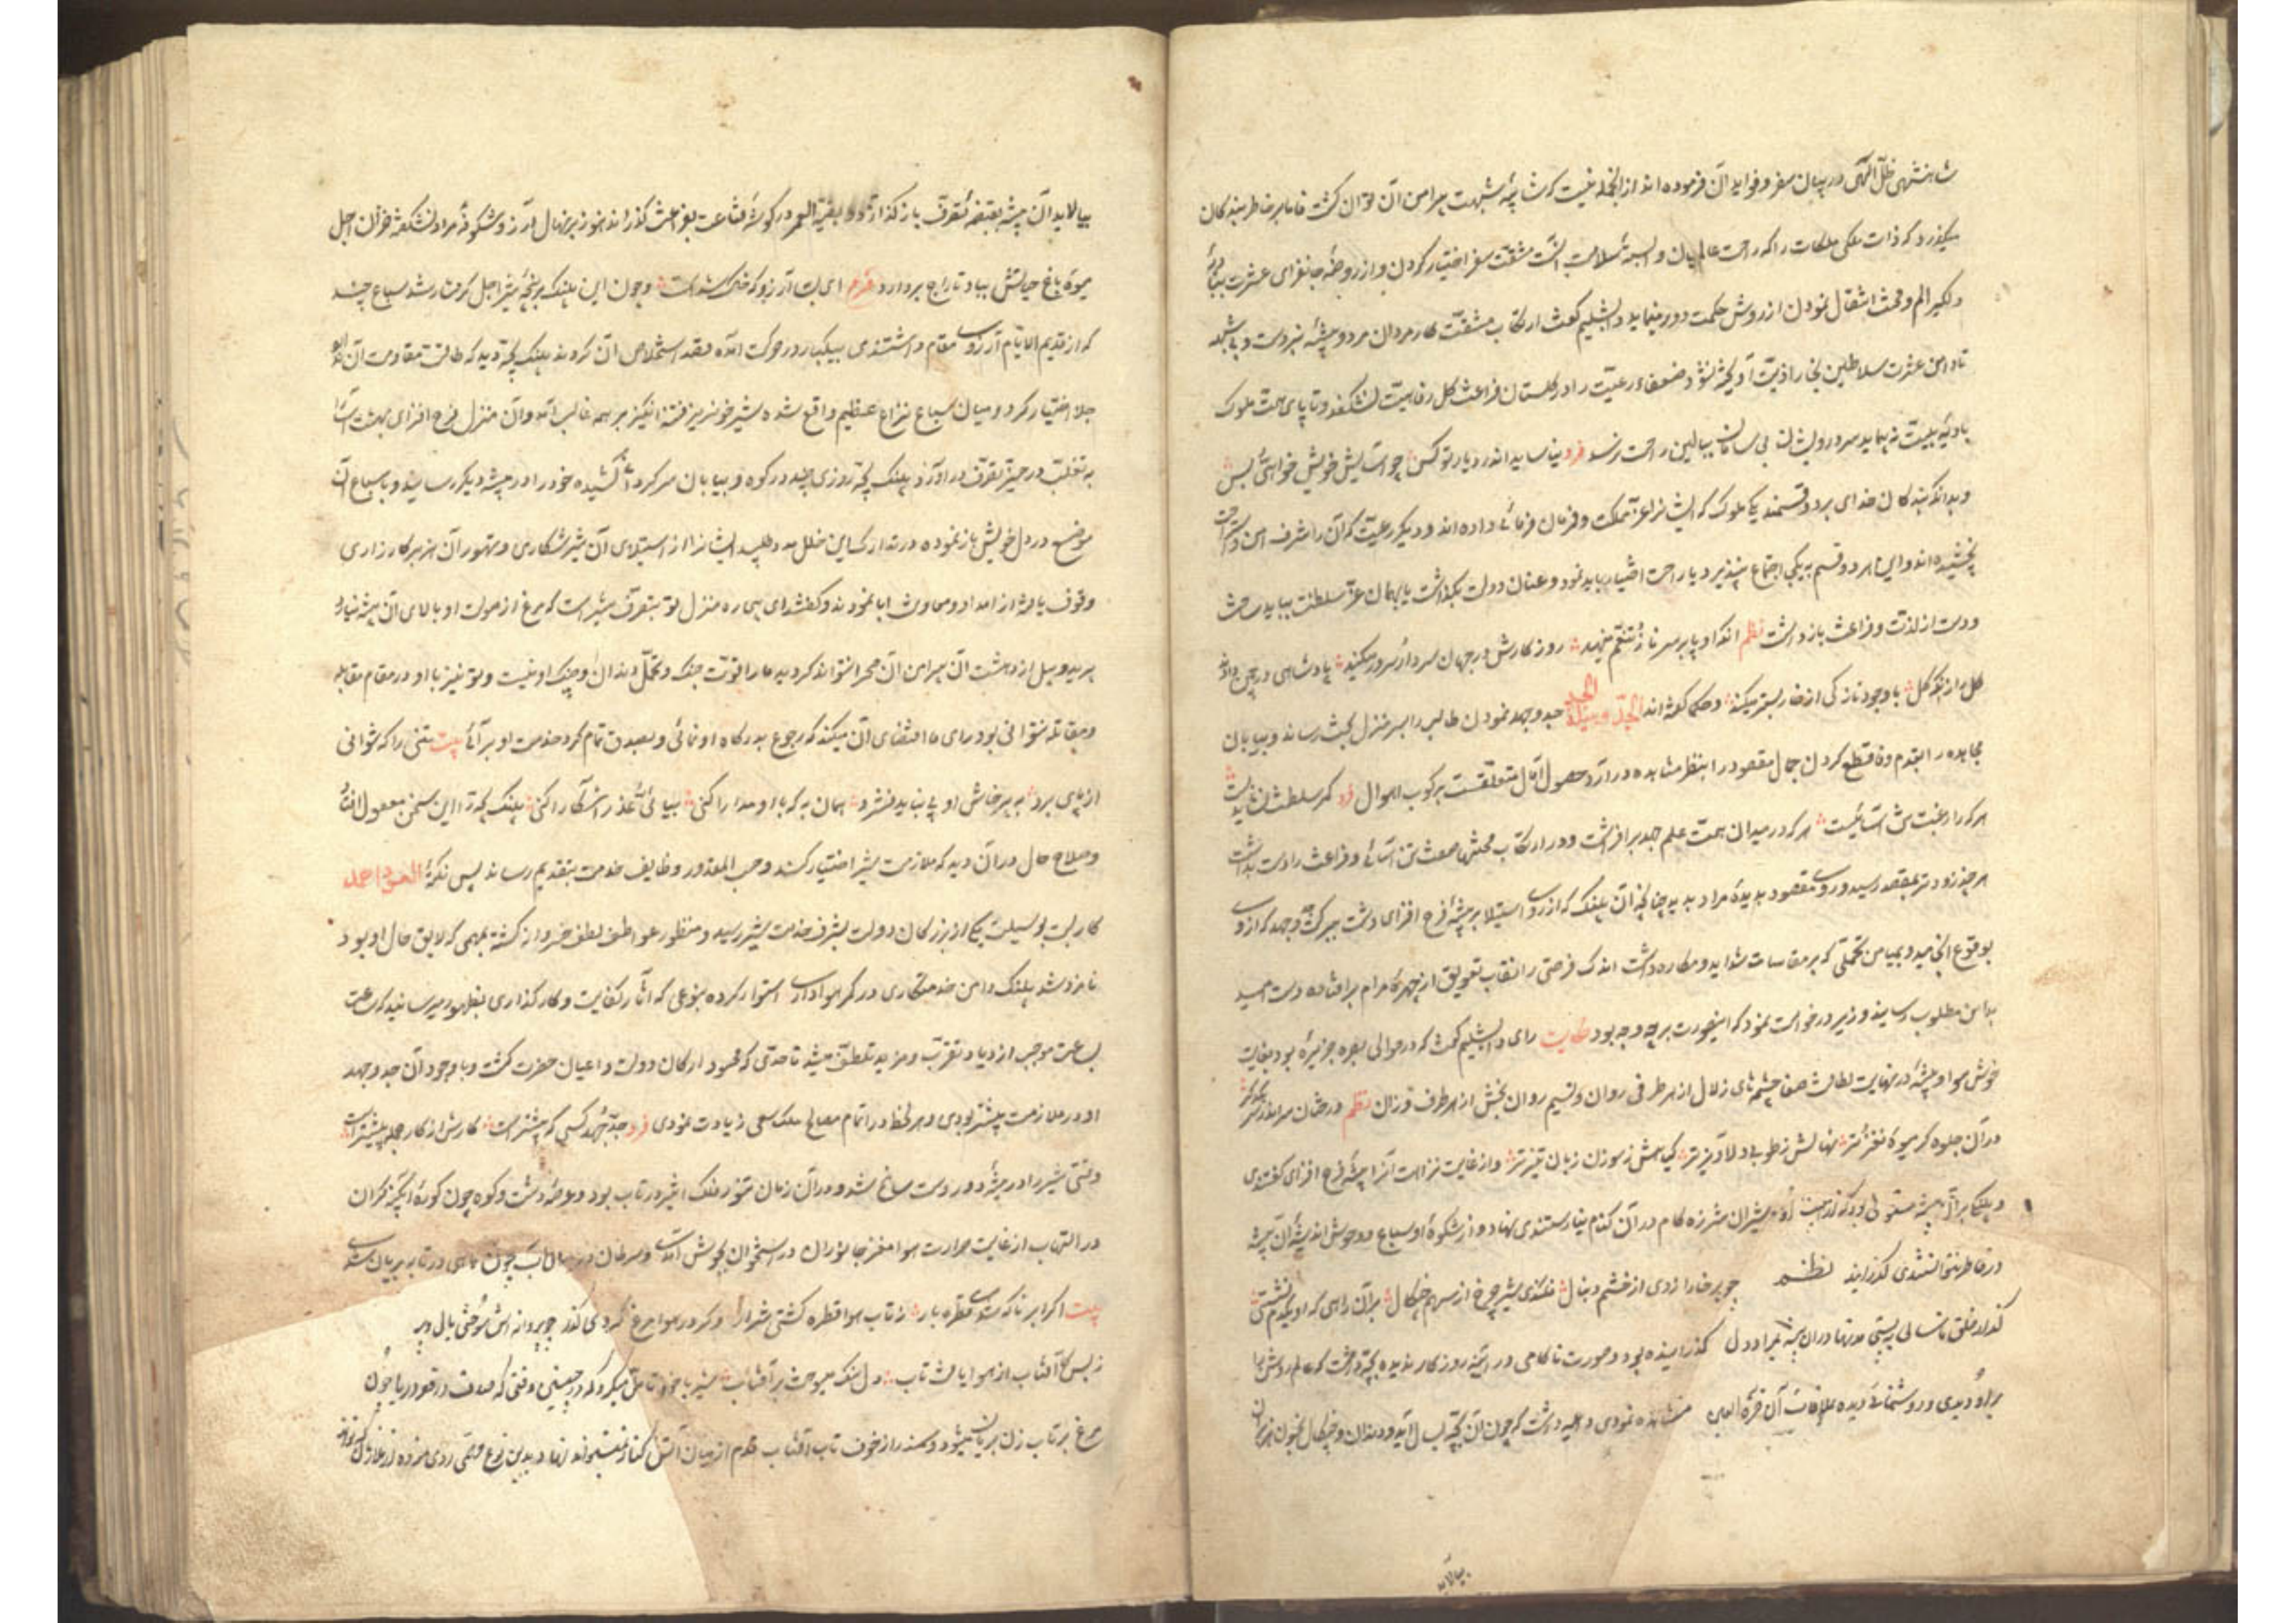 شاهنشهی ظل الهی در بیان سفر و فواید آن فرموده اند از آنجمله نیست که شایبه شبهت پیرامن آن توان گشت فاما بر خاطر بندکان
میکذرد که ذات ملکی ملکات را که راحت عالمیان وابسته سلامت آنست مشقت سفر اختیار کردن و از روضه جانفزای عشرت ببادیه
دلکیر الم و محنت انتقال نمودن از روش حکمت دور مینماید دابشلیم کفت ارتکاب مشقت کار مردان مرد و پیشه نبردست و
تا دامن عشرت سلاطین بخار اذیت آویخته نشود ضعفاء رعیت را در کلستان فراغت کل رفاهیت نشکفد و تا پای همت ملوک
بادیه نه پیماید سر درویشان بی سامان ببالین راحت نرسد فرد نیاساید اندر دیار تو کس چو آسایش خویش خواهی و بس
و بدانکه بندکان خدای بر دو قسمند یکی ملوک که ایشانرا عز مملکت و فرمان فرمائی داده اند و دیکر رعیت که آن را شرف امن و راحت
بخشیده اند و این هر دو قسم به یکی اجتماع نپذیرد یا راحت اختیار باید نمود و عنان دولت بکذاشت یا بهمان عز سلطنت بباید ساخت
و دست از لذت و فراغت باز داشت نظم آنکه او پا بر سر ناز و تنعم مینهد روزکارش در جهان سردار و سرور میکند پادشاهی در چمن دادند
کل را زانکه کل با وجود نازکی از خار بستر میکند و حکما کفته اند الجد وسیلة الجد جد و جهد نمودن طالب را بسر منزل بخت رساند و بیابان
مجاهده را بقدم وفا قطع کردن جمال مقصود را بنظر مشاهده در آرد حصول آمال متعلقست برکوب اهوال فرد کمر سلطنت نشاید بست
هر که را رغبت تن آسائیست هر که در میدان همت علم جهد برافراشت و در ارتکاب محنتها صعب تن آسائی و فراغت را دست بداشت
هر چند زودتر بمقصد رسید و روی مقصود بدیده مراد بدید چنانچه آن پلنک که آرزوی استیلا بر بیشه فرح افزای داشت ببرکت جد و جهد که ازوی
بوقوع انجامید و بمیامن تحملی که بر مقاسات شداید و مکاره داشت اندک فرصتی را نقاب تعویق از چهره مرام برافتاده دست امید
بدامن مطلوب رسانید وزیر درخواست نمود که اینصورت برچه وجه بود حکایت رای دابشلیم کفت که در حوالی بصره جزیره بود بغایت
خوش هوا و بیشه در نهایت لطافت صفا چشمهای زلال از هر طرفی روان و نسیم روان بخش از هر طرف وزان نظم درختان سراندر سر
در آن جلوه کر میوه نغز تر نهالش ز طوبی دلاویزتر کیاهش ز سوزن زبان تیزتر و از غایت نزاهت آنرا بیشه فرح افزای کفتندی
و پلنکی بر آن بیشه مستولی بود که از هیبت او شیران شرزه کام در آن کنام نیارستندی نهاد و از شکوه او سباع و وحوش اندیشه آن بیشه
در خاطر نتوانستندی کذرانید نظم چو بر خارا زدی از خشم دنبال فکندی شیر چرخ از سهم چنکال بر آن راهی که او یکدم نشستی
کذار خلق تا سالی ببستی مدتها در آن بیشه بمراد دل کذرانیده بود و صورت ناکامی در آینه روزکار ندیده بچه داشت که عالم روشن را
برو دیدی و روشنائی دیده بملاقات آن قرة العین مشاهده نمودی داعیه داشت که چون آن بچه بسال آید و دندان و چنکال بخون هژبران
بیالاید
بیالاید آن بیشه بقبضه تصرف باز کذارد و بقیة العمر در کوشه قناعت بفراغت کذراند هنوز بر نهال آرزو شکوفه مراد نشکفته خزان اجل
میوه باغ حیاتش بباد تاراج برداد ای بسا آرزو که خاک شدست و چون این پلنک بپنجه شیر اجل کرفتار شد سباع چند
که از قدیم الایام آرزوی مقام داشتندی بیکبار در حرکت آمده قصد استخلاص آن کردند پلنک بچه دید که طاقت مقاومت آن ندارد
جلا اختیار کرد و میان سباع نزاع عظیم واقع شده شیر خونریز فتنه انکیز بر همه غالب آمد و آن منزل فرح افزای بهشت آسا
به تغلب در حیز تصرف در آورد پلنک بچه روزی چند در کوه و بیابان سرکردانی کشیده خود را در بیشه دیکر رسانید و با سباع آن
موضع درد دل خویش باز نموده در تدارک این خلل مدد طلبید ایشان از استیلای آن شیر شکاری و تهور آن هژبر کارزاری
وقوف یافته از امداد و معاونت ابا نمودند و کفتند ای بیچاره منزل تو بتصرف شیریست که مرغ از صولت او بالای آن بیشه نیارد
پرید و پیل از دهشت آن پیرامن آن صحرا نتواند کردید ما را قوت جنک و تحمل دندان و چنک او نیست و تو نیز با او در مقام مقابله
و مقاتله نتوانی بود رای ما اقتضای آن میکند که رجوع بدرکاه او نمائی و بصدق تمام کرد خدمت او برآئی بیت تنی را که نتوانی
از پای برد به پرخاش او پی نباید فشرد همان به که با او مدارا کنی بیائی عذر آشکارا کنی پلنک بچه را این سخن معقول افتاد
و صلاح حال در آن دید که ملازمت شیر اختیار کند و حسب المقدور وظایف خدمت بتقدیم رساند پس نکته العود احمد
کار بسته بوسیلت یکی از بزرکان دولت بشرف خدمت شیر رسید و منظور عواطف لطف خسروانه کشته بمهمی که لایق حال او بود
نامزد شد پلنک دامن خدمتکاری در کمر هواداری استوار کرده بنوعی که آثار کفایت و کارکذاری بظهور میرسانید که ساعت
بساعت موجب ازدیاد تقرب و مزید تلطف میشد تا حدی که محسود ارکان دولت و اعیان حضرت کشت و با وجود آن جد و جهد
او در ملازمت بیشتر بودی و هر لحظه در اتمام مصالح ملک سعی زیادت نمودی فرد جد و جهد کسی که بیشتر است کارش از کار جمله پیشتر است
وقتی شیر را در بیشه دور دست سانح شد و در آن زمان تنور فلک اثیر در تاب بود و عرصه دشت و کوه چون کوره آبکینه کران
در التهاب از غایت حرارت هوا مغز جانوران در استخوان بجوش آمدی و سرطان در میان آب چون ماهی در تابه بریان شدی
بیت اکر ابر ناکه شدی قطره بار ز تاب هوا قطره کشتی شرار و کر در هوا مرغ کردی کذر چو پروانه اش سوختی بال و پر
ز بس کآفتاب از هوا یافت تاب دل سنک میسوخت بر آفتاب شیر با خود تامل میکرد که در چنین وقتی که صدف در قعر دریا چون
مرغ بر تاب زن بریان میشود و سمندر از خوف تاب آفتاب قدم از میان آتش بکنار نمیتواند نهاد بدین نوع مهمی روی نموده